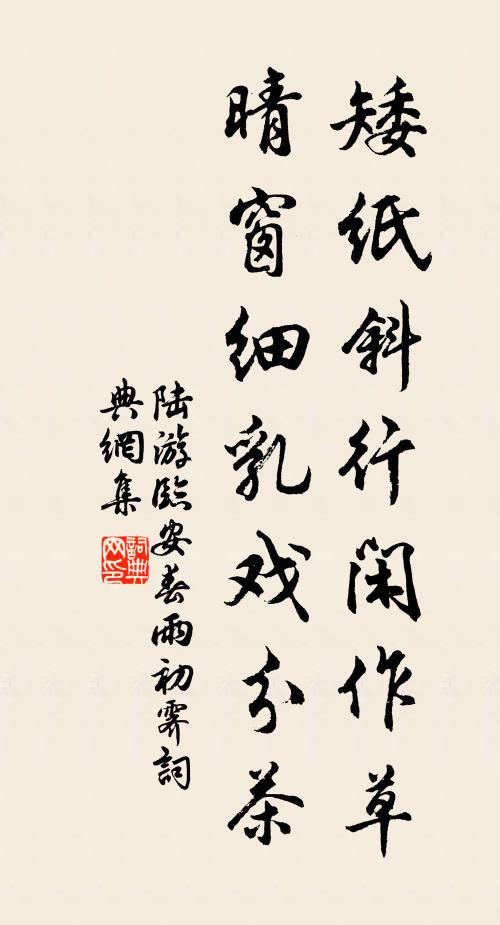 矮纸斜行闲作草
晴窗细乳戏分茶
陆游临安春雨初霁詞
典網集
詞典
网印